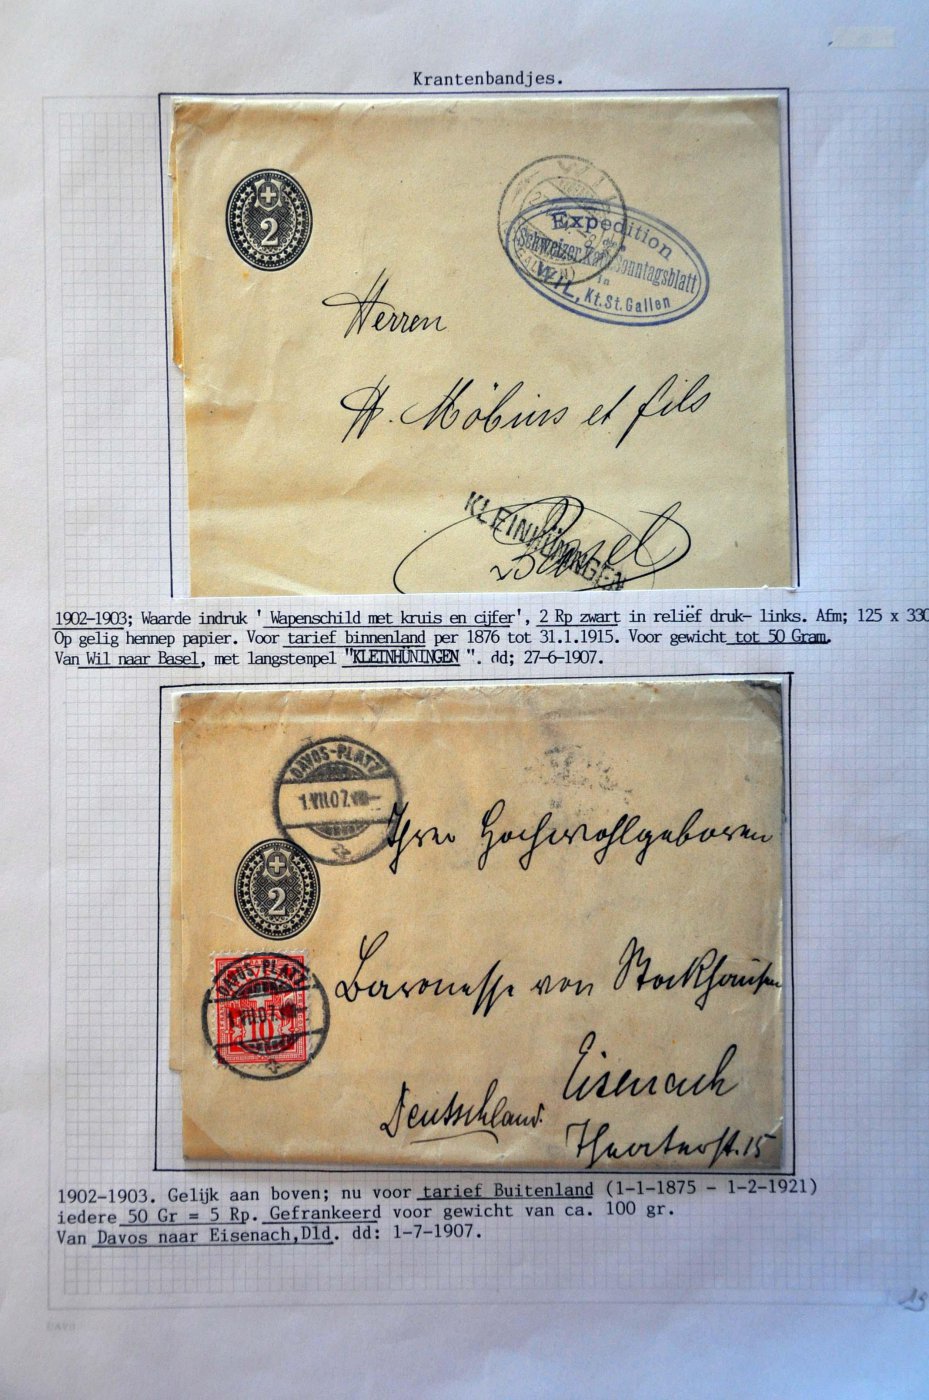 Krantenbandjes.
2
Expedition
des
Schweizer. Kath. Sonntagsblatt
in
WIL, Kt. St. Gallen
Herren
H. Möbius et fils
KLEINHÜNINGEN
Basel
1902-1903; Waarde indruk ' Wapenschild met kruis en cijfer', 2 Rp zwart in reliëf druk- links. Afm; 125 x 330
Op gelig hennep papier. Voor tarief binnenland per 1876 tot 31.1.1915. Voor gewicht tot 50 Gram.
Van Wil naar Basel, met langstempel "KLEINHÜNINGEN ". dd; 27-6-1907.
DAVOS-PLATZ
1.VII.07.VIII-
Ihrer Hochwohlgeboren
2
Baronesse von Stockhausen
DAVOS-PLATZ
1.VII.07.VIII-
10
Eisenach
Deutschland.
Theaterst. 15
1902-1903. Gelijk aan boven; nu voor tarief Buitenland (1-1-1875 - 1-2-1921)
iedere 50 Gr = 5 Rp. Gefrankeerd voor gewicht van ca. 100 gr.
Van Davos naar Eisenach,Dld. dd: 1-7-1907.
19
DAVO